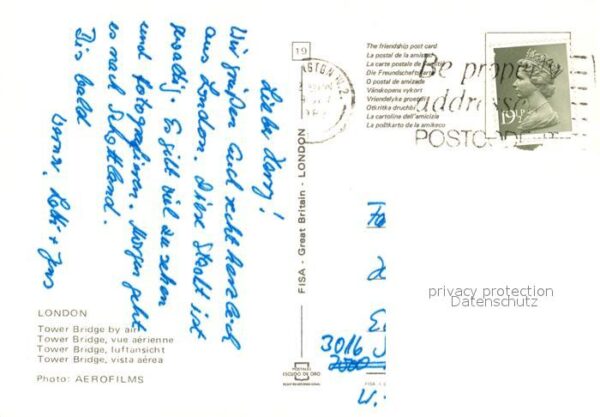 Lieber Harry!
Wir grüßen Euch recht herzlich
aus London. Diese Stadt ist
gewaltig. Es gibt viel zu sehen
und fotografieren. Morgen geht
es nach Schottland.
Bis bald
Lotti + Jens
LONDON
Tower Bridge by air
Tower Bridge, vue aérienne
Tower Bridge, luftansicht
Tower Bridge, vista aérea
Photo: AEROFILMS
19
FISA - Great Britain - LONDON
POSTALES
ESCUDO DE ORO
The friendship post card
La postal de la amistad
La carte postale de
Die Freundschaft
O postal de amizade
Vänskapens vykort
Vriendelijke groet
Otkritka druchb
La cartoline dell'amicizia
La poŝtkarto de la amikeco
Be properly
addressed
POSTCODE
19½
3016
3000
privacy protection
Datenschutz